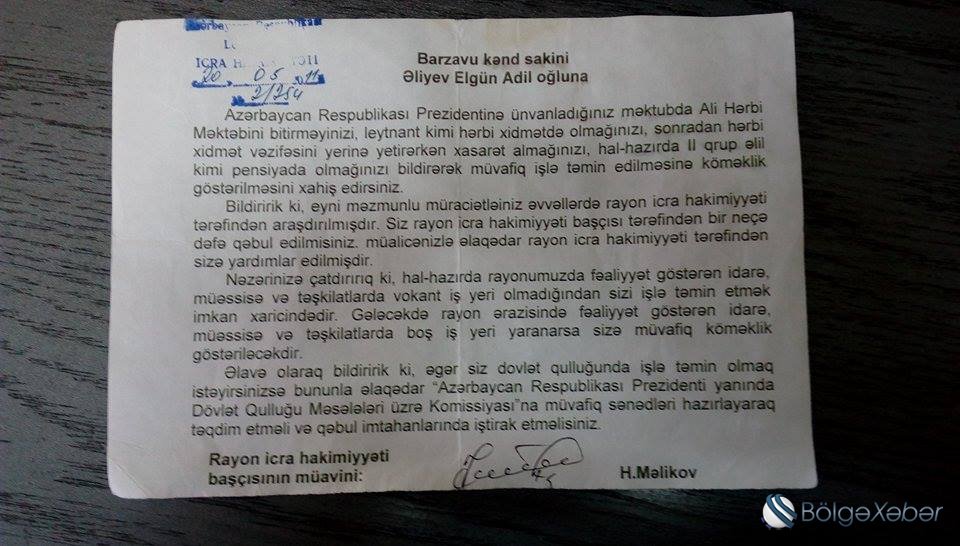 Azərbaycan Respublikası
İCRA
20 05 2011
2/254
Barzavu kənd sakini
Əliyev Elgün Adil oğluna
Azərbaycan Respublikası Prezidentinə ünvanladığınız məktubda Ali Hərbi
Məktəbini bitirməyinizi, leytnant kimi hərbi xidmətdə olmağınızı, sonradan hərbi
xidmət vəzifəsini yerinə yetirərkən xasarət almağınızı, hal-hazırda II qrup əlil
kimi pensiyada olmağınızı bildirərək müvafiq işlə təmin edilməsinə köməklik
göstərilməsini xahiş edirsiniz.
Bildiririk ki, eyni məzmunlu müraciətləiniz əvvəllərdə rayon icra hakimiyyəti
tərəfindən araşdırılmışdır. Siz rayon icra hakimiyyəti başçısı tərəfindən bir neçə
dəfə qəbul edilmisiniz. müalicənizlə əlaqədar rayon icra hakimiyyəti tərəfindən
sizə yardımlar edilmişdir.
Nəzərinizə çatdırırıq ki, hal-hazırda rayonumuzda fəaliyyət göstərən idarə,
müəssisə və təşkilatlarda vokant iş yeri olmadığından sizi işlə təmin etmək
imkan xaricindədir. Gələcəkdə rayon ərazisində fəaliyyət göstərən idarə,
müəssisə və təşkilatlarda boş iş yeri yaranarsa sizə müvafiq köməklik
göstəriləcəkdir.
Əlavə olaraq bildiririk ki, əgər siz dovlət qulluğunda işlə təmin olmaq
istəyirsinizsə bununla əlaqədar “Azərbaycan Respublikası Prezidenti yanında
Dövlət Qulluğu Məsələləri üzrə Komissiyası”na müvafiq sənədləri hazırlayaraq
təqdim etməli və qəbul imtahanlarında iştirak etməlisiniz.
Rayon icra hakimiyyəti
başçısının müavini:
H.Məlikov
BölgəXəbər